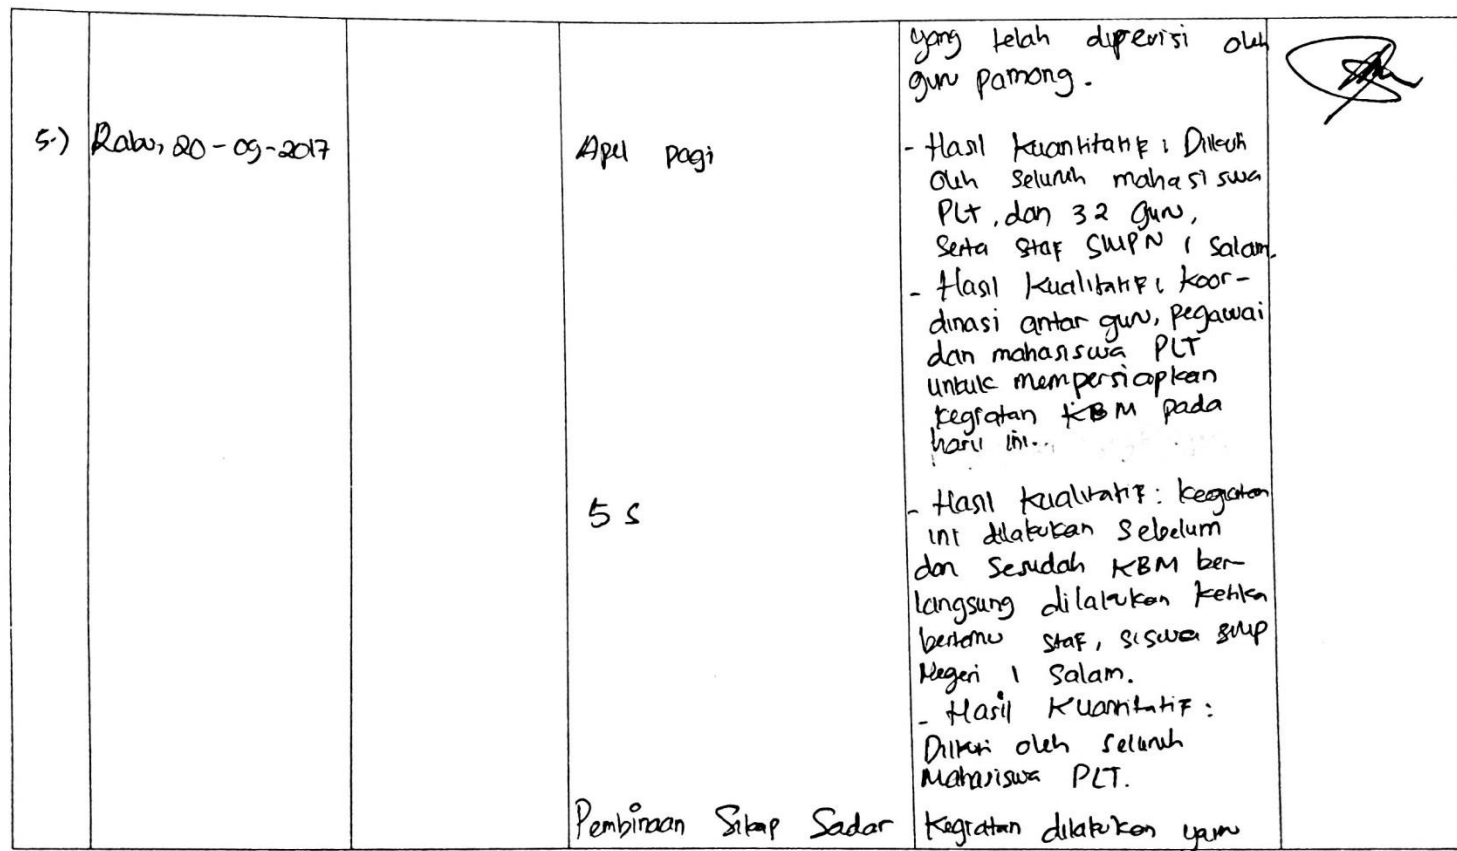 yang telah direvisi oleh
guru pamong.
5.) Rabu, 20-09-2017 Apel pagi - Hasil Kuantitatif : Diikuti
oleh seluruh mahasiswa
PLT, dan 32 guru,
serta staf SMPN 1 Salam.
- Hasil Kualitatif : koor-
dinasi antar guru, pegawai
dan mahasiswa PLT
untuk mempersiapkan
kegiatan KBM pada
hari ini..
5 S - Hasil Kualitatif : kegiatan
ini dilakukan sebelum
dan sesudah KBM ber-
langsung dilakukan ketika
bertemu staf, siswa SMP
Negeri 1 Salam.
- Hasil Kuantitatif :
Diikuti oleh seluruh
Mahasiswa PLT.
Pembinaan Sikap Sadar Kegiatan dilakukan yaitu